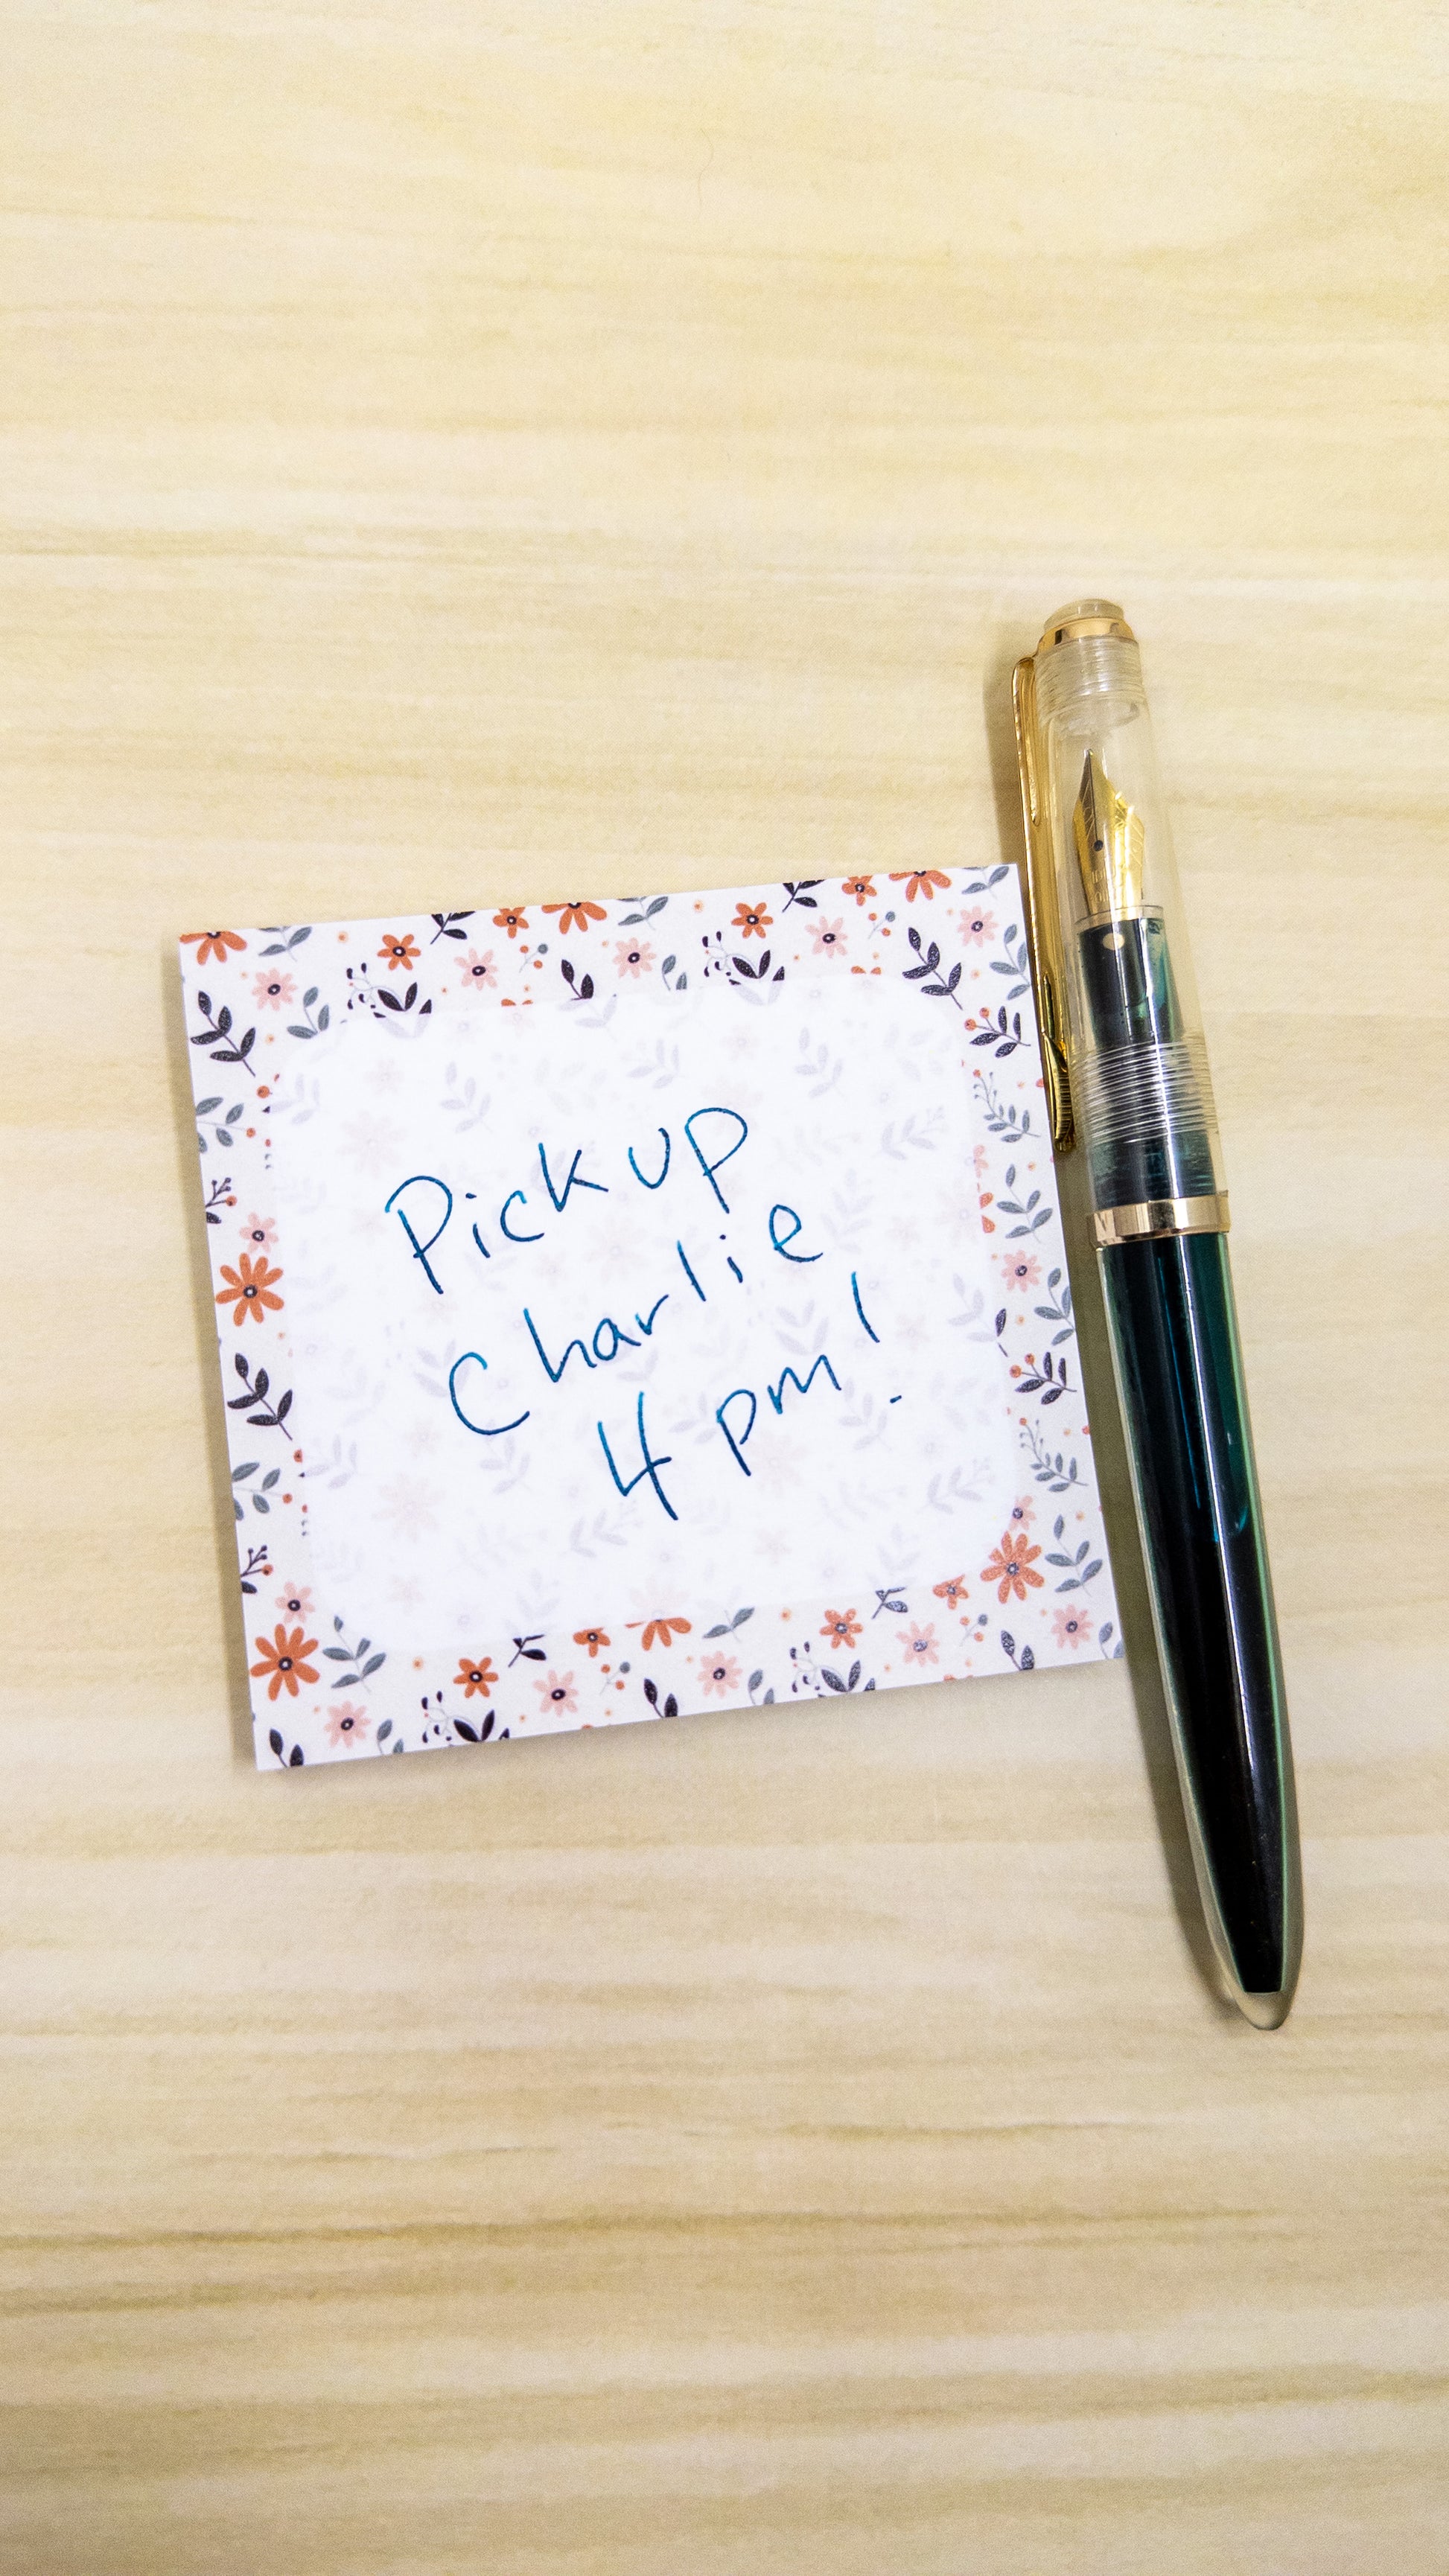 Pick up
Charlie
4 pm!